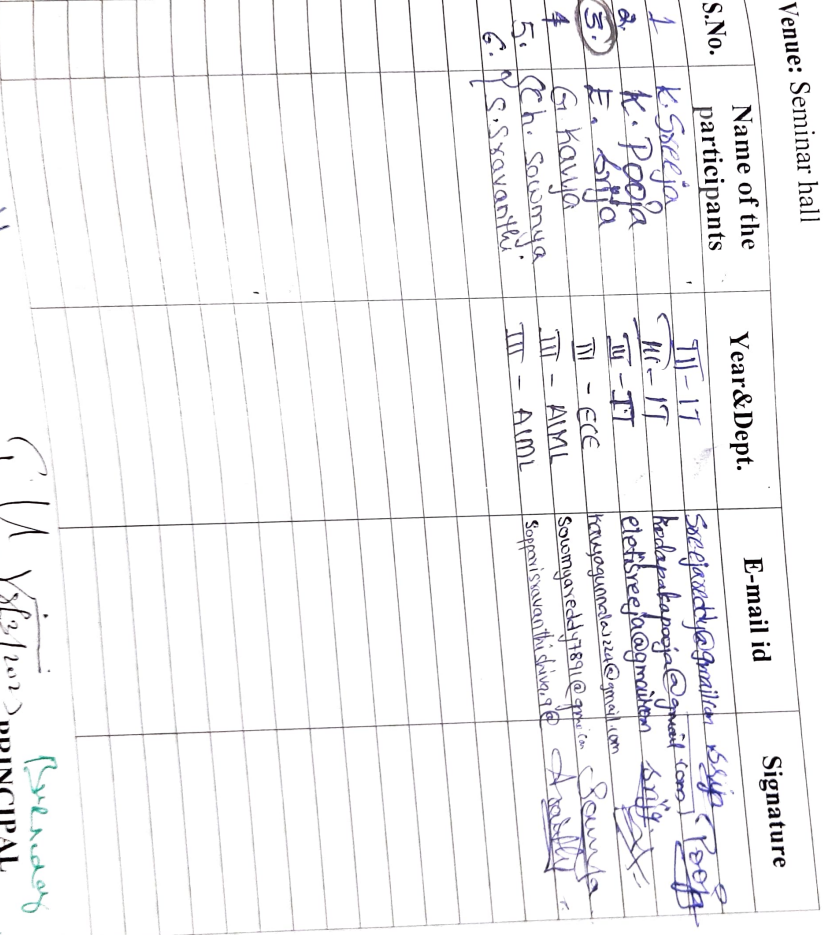 Venue: Seminar hall
S.No. Name of the participants Year&Dept. E-mail id Signature
1 K.Sreeja III - IT Sreejareddy@gmail.com
2. K. Pooja III - IT kedapakapooja@gmail.com Pooja
3. E. Srija III - IT eletisreeja@gmail.com Srija
4 G. Kavya III - ECE kavyagunnala1224@gmail.com
5. Ch. Sowmya III - AIML sowmyareddy7891@gmail.com Sowmya
6. S. Sravanthi III - AIML
PRINCIPAL